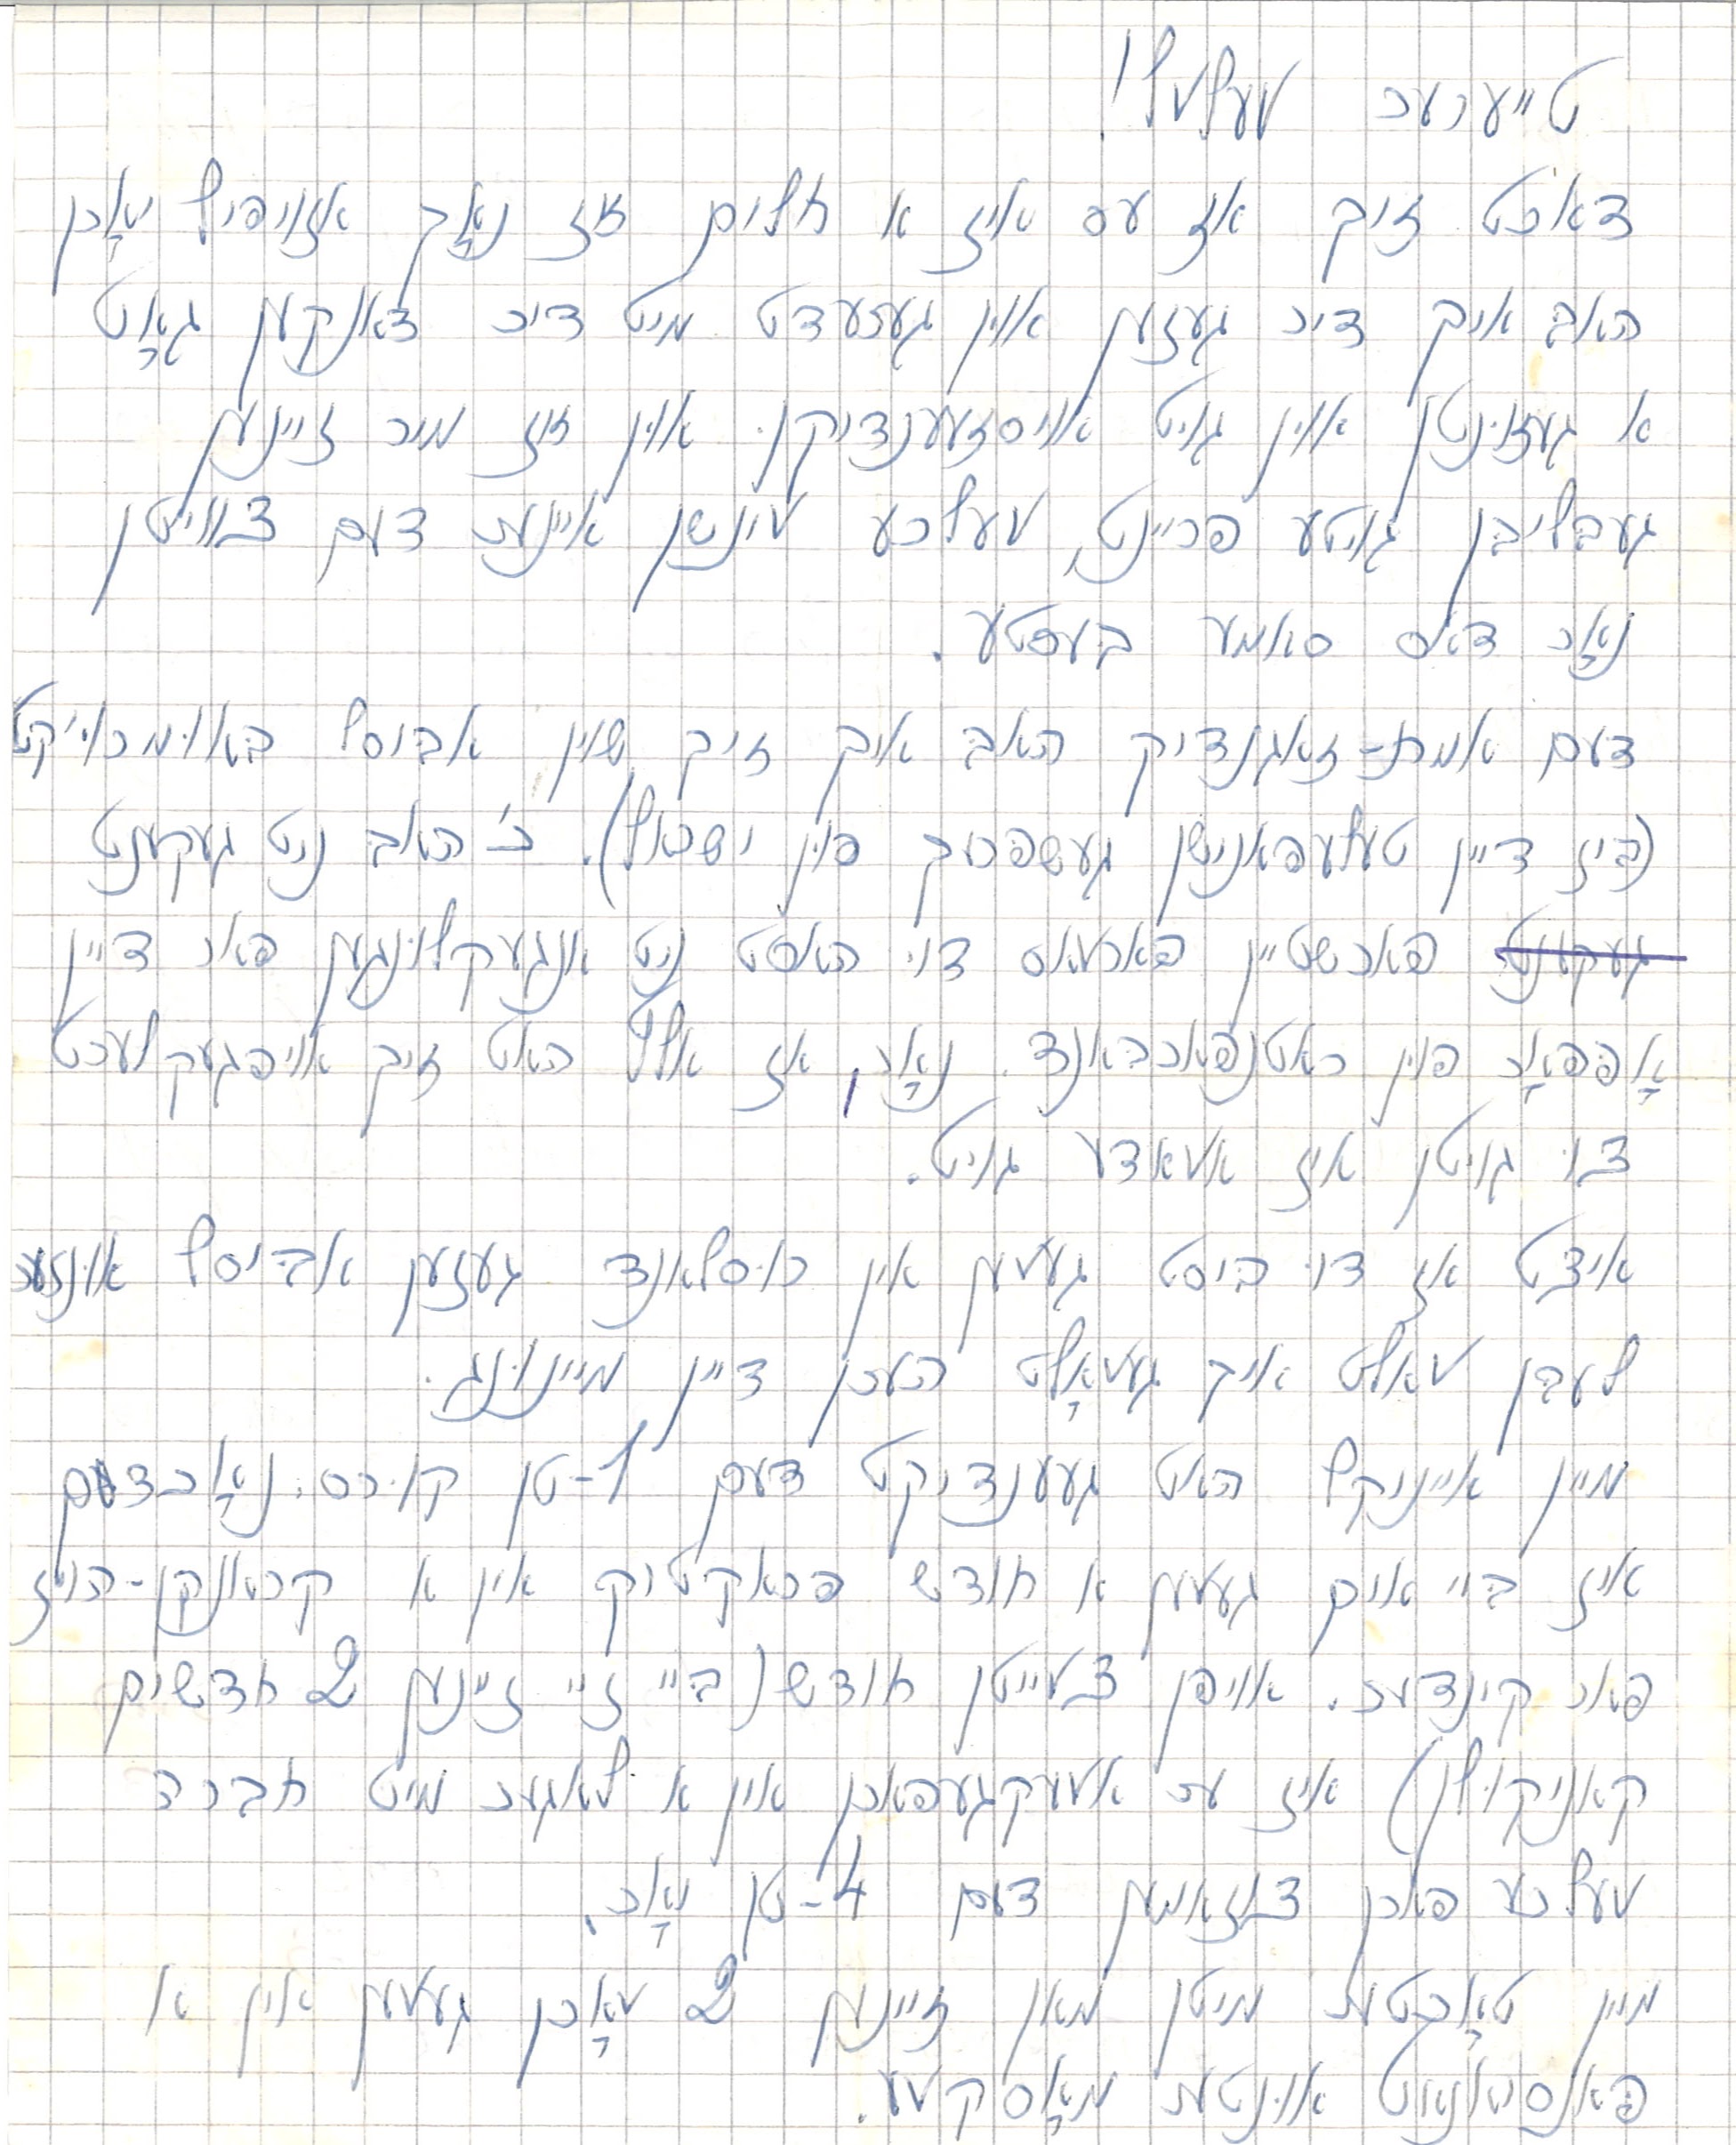 טייערער וועלוול!
דאכט זיך אז עס איז א חלום אז נאָך אזויפיל יאָרן
האב איך דיר געזען און גערעדט מיט דיר דאנקען גאָט
א געזונטן און גוט אויסזעענדיקן. און אז מיר זיינען
געבליבן גוטע פריינט, וועלכע ווינשן איינער דעם צווייטן
נאָר דאס סאמע בעסטע.
דעם אמת-זאגנדיק האב איך זיך שוין אביסל באאומרויקט
(ביז דיין טעלעפאנישן געשפרעך פון ישראל). כ'האב ניט געקענט
פארשטיין פארוואס דו האסט ניט אנגעקלונגען פאר דיין
אָפּפאָר פון ראטנפארבאנד. נאָר, אז אלץ האט זיך אויפגעקלערט
צו גוטן איז אוואדע גוט.
איצט אז דו ביסט געווען אין רוסלאנד געזען אביסל אונזער
לעבן וואלט איך געוואָלט הערן דיין מיינונג.
מיין אייניקל האט געענדיקט דעם 1-טן קורס, נאָכדעם
איז ביי אים געווען א חודש פראקטיק אין א קראנקן-הויז
פאר קינדער. אויפן צווייטן חודש (ביי זיי זיינען 2 חדשים
קאניקולן) איז ער אוועקגעפארן אין א לאגער מיט חברה
וועלכע פארן צוזאמען דעם 4-טן יאָר.
מיין טאָכטער מיטן מאן זיינען 2 וואָכן געווען אין א
פאנסיאנאט אונטער מאָסקווע.